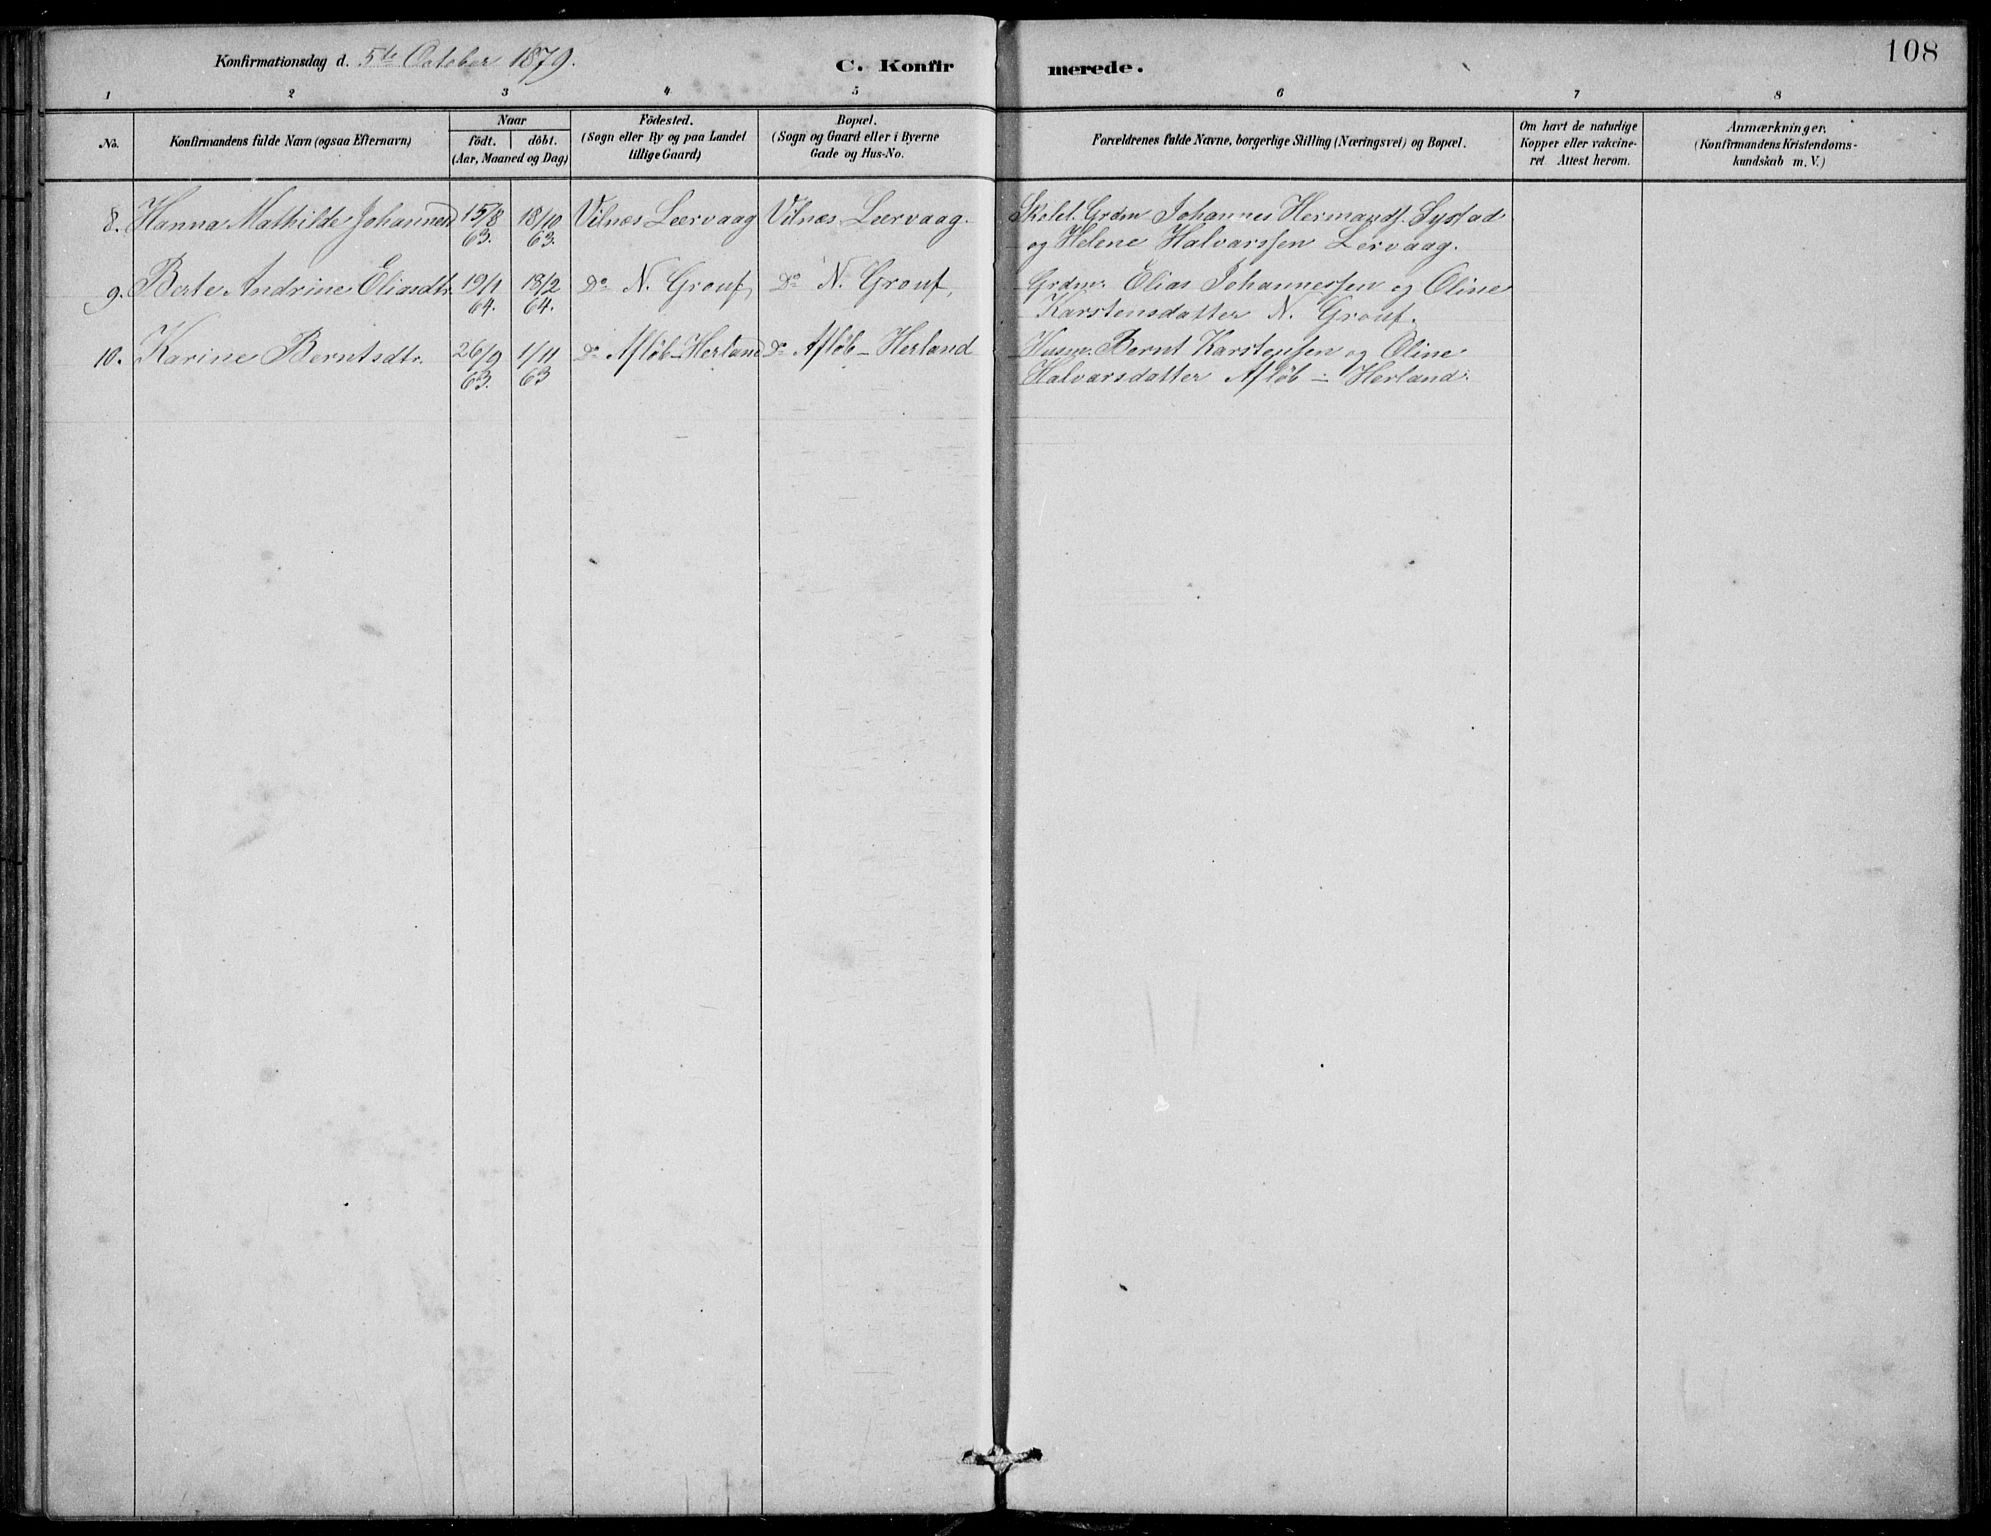 108
Konfirmationsdag d. 5te October 1879.
C. Konfirmerede.
1 2 3 4 5 6 7 8
No.
Konfirmandens fulde Navn (ogsaa Efternavn)
Naar
födt. döbt.
(Aar, Maaned og Dag)
Födested.
(Sogn eller By og paa Landet
tillige Gaard)
Bopæl.
(Sogn og Gaard eller i Byerne
Gade og Hus-No.
Forældrenes fulde Navne, borgerlige Stilling (Næringsvei) og Bopæl.
Om havt de naturlige
Kopper eller vakcine-
ret Attest herom.
Anmærkninger.
(Konfirmandens Kristendoms-
kundskab m. V.)
8. Hanna Mathilde Johannesd 15/8 63. 18/10 63. Vilnæs Leervaag Vilnæs Leervaag. Skolel. Grdm Johannes Hermandsf. Systad
og Helene Halvarssen Lervaag.
9. Berte Andrine Eliasdtr. 19/1 64. 13/2 64. Do N. Grouf, Do N. Grouf, Grdm. Elias Johannessen og Oline
Karstensdatter N. Grouf.
10. Karine Berntsdtr. 26/9 63. 1/11 63 Do Afløb-Herland Do Afløb-Herland Husm. Bernt Karstensen og Oline
Halvarsdatter Afløb-Herland.